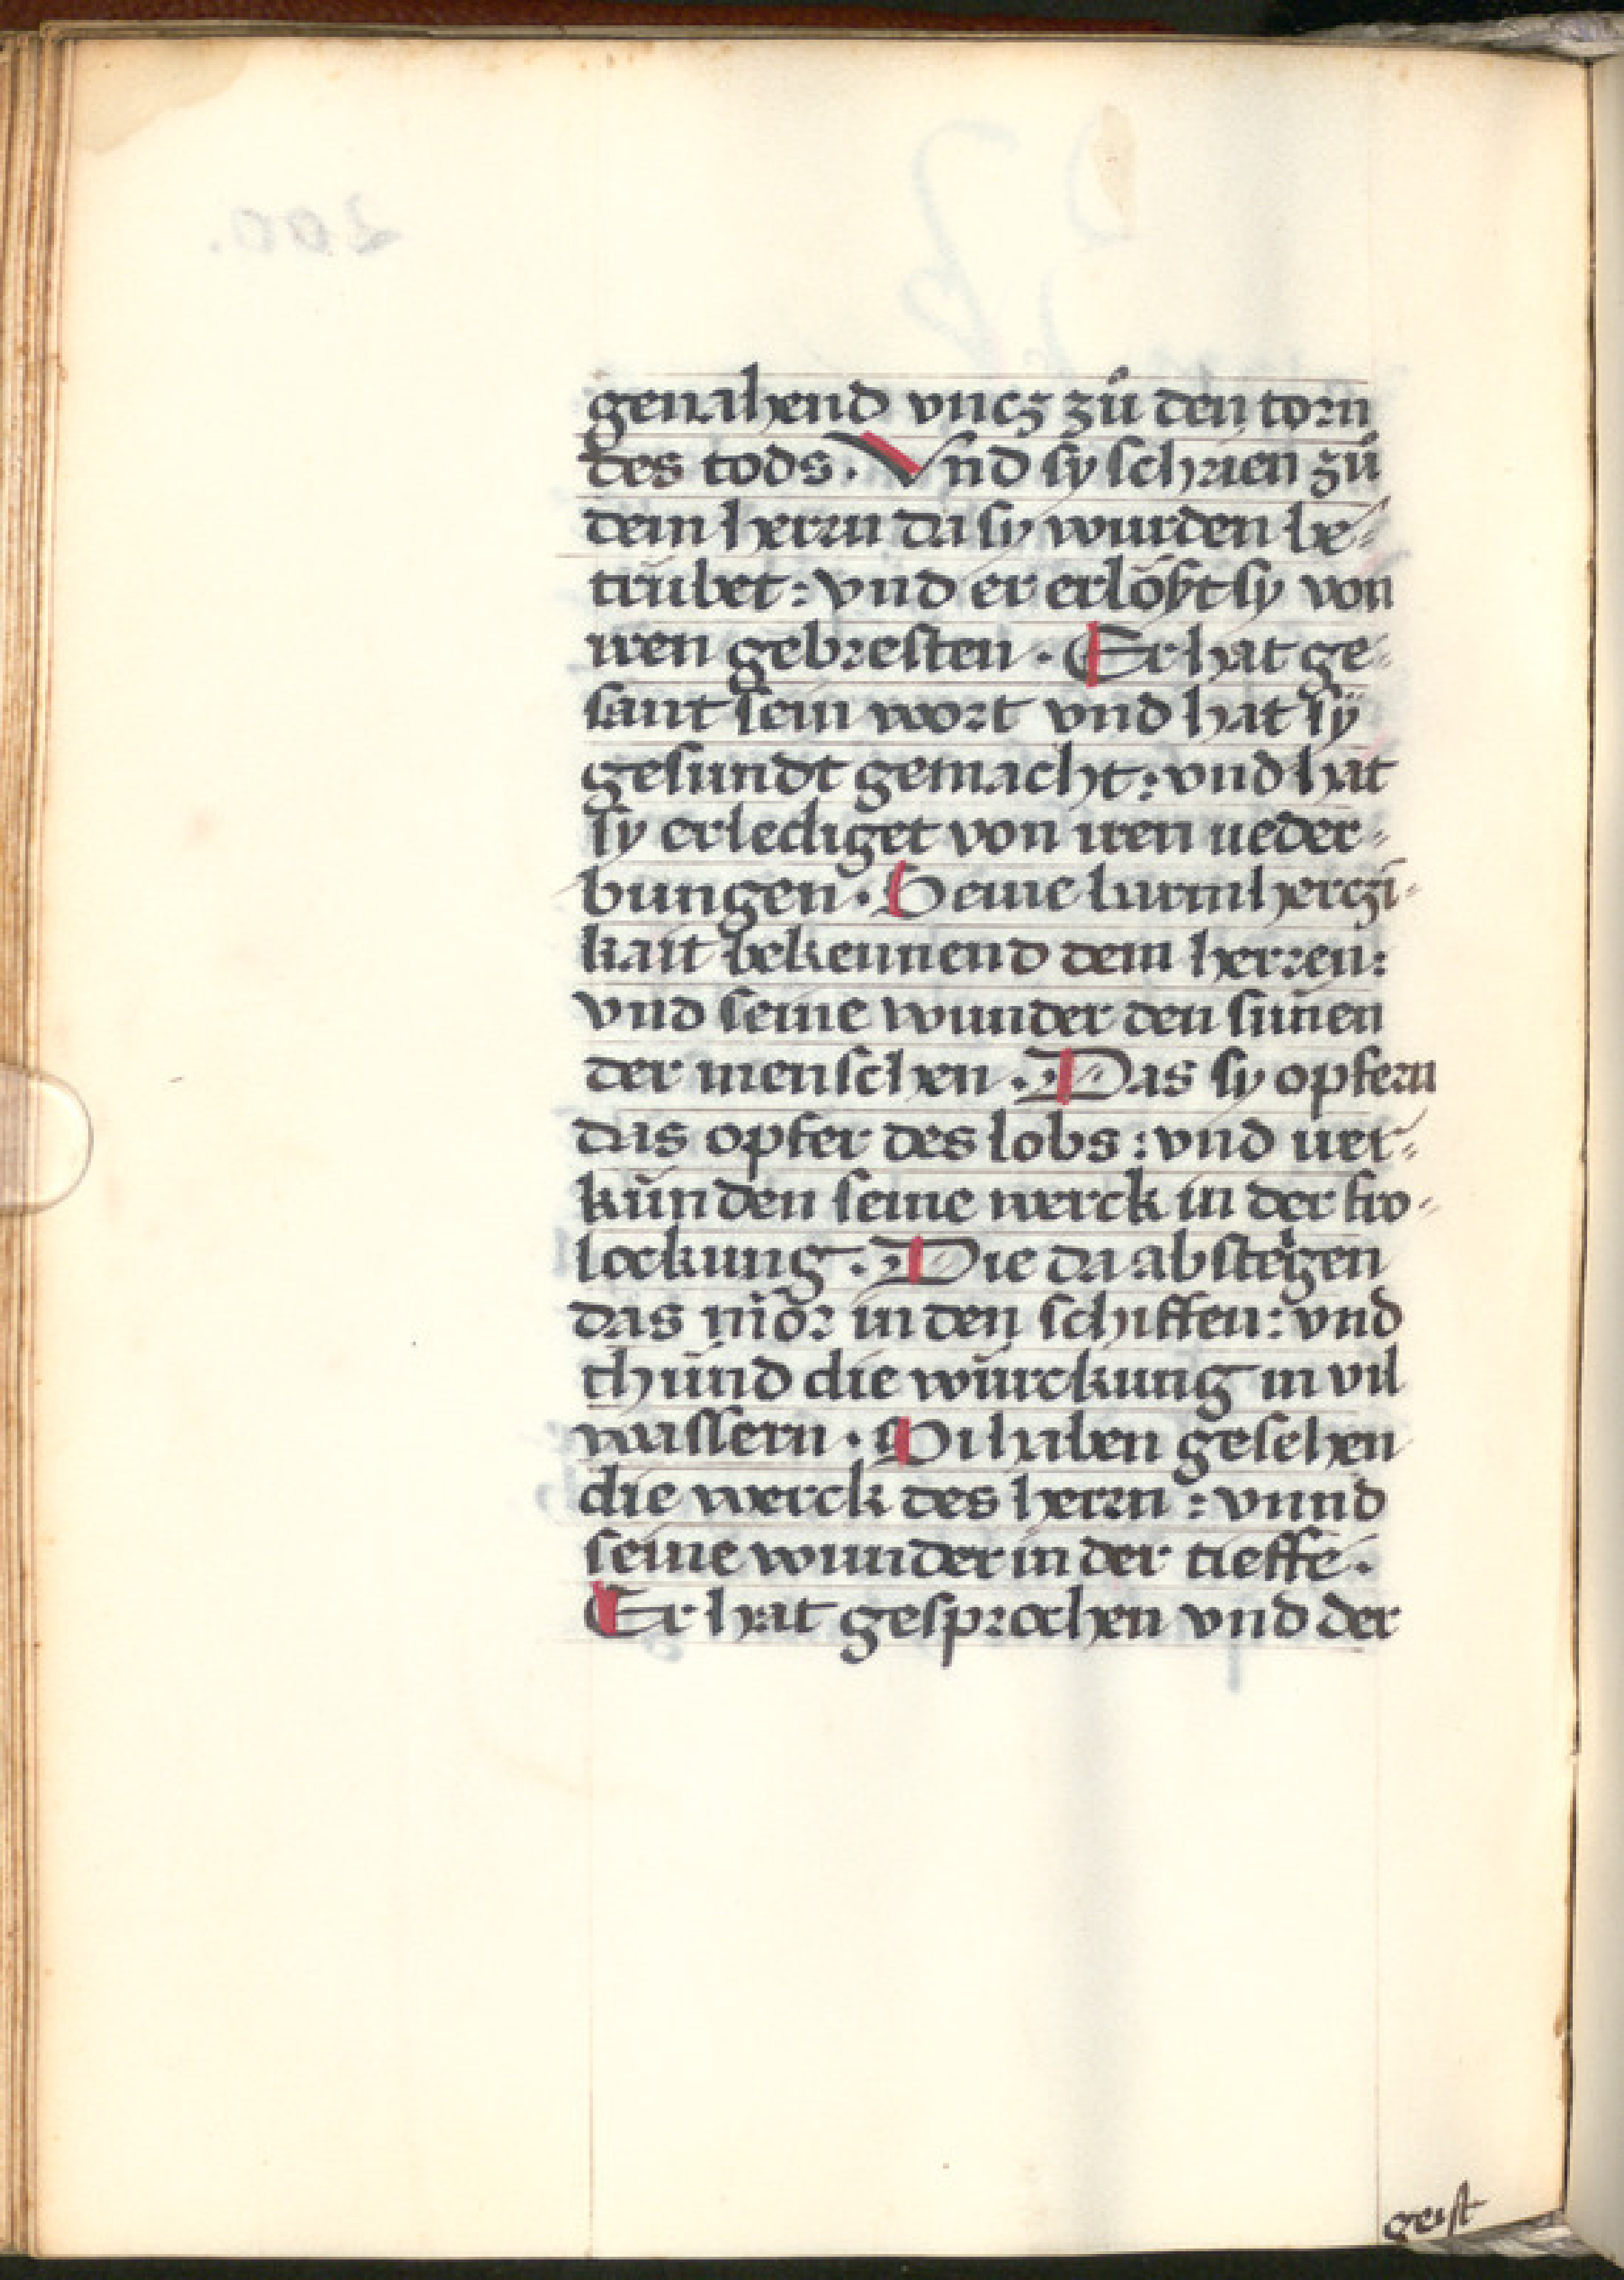 genahend vncz zů den torn
des tods. Vnd sy schrien zů
dem herrn da sy wurden be⸗
trübet: vnd er erlößt sy von
iren gebresten. Er hat ge⸗
sant sein wort vnd hat sÿ
gesundt gemacht: vnd hat
sy erlediget von iren ueder⸗
bungen. Seine barmherczi⸗
kait bekennend dem herren:
vnd seine wunder den sünen
der menschen. Das sy opfern
das opfer des lobs: vnd uer⸗
künden seine werck in der fro⸗
lockung. Die da absteygen
das mör in den schiffen: vnd
thůnd die würckung in vil
wassern. Si haben gesehen
die werck des herrn: vnnd
seine wunder in der tieffe.
Er hat gesprochen vnd der
geist